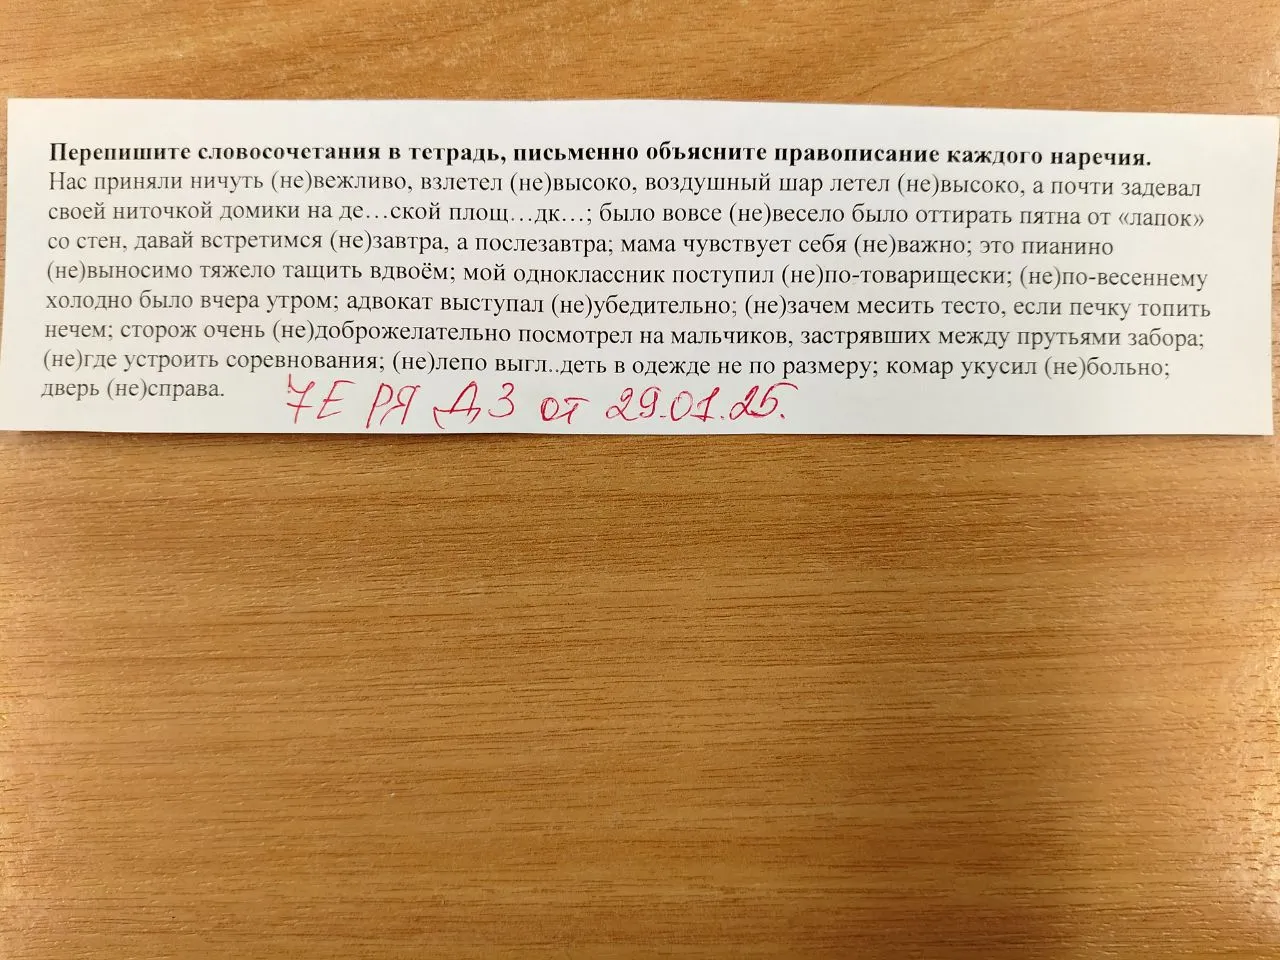 Перепишите словосочетания в тетрадь, письменно объясните правописание каждого наречия.
Нас приняли ничуть (не)вежливо, взлетел (не)высоко, воздушный шар летел (не)высоко, а почти задевал
своей ниточкой домики на де…ской площ…дк…; было вовсе (не)весело было оттирать пятна от «лапок»
со стен, давай встретимся (не)завтра, а послезавтра; мама чувствует себя (не)важно; это пианино
(не)выносимо тяжело тащить вдвоём; мой одноклассник поступил (не)по-товарищески; (не)по-весеннему
холодно было вчера утром; адвокат выступал (не)убедительно; (не)зачем месить тесто, если печку топить
нечем; сторож очень (не)доброжелательно посмотрел на мальчиков, застрявших между прутьями забора;
(не)где устроить соревнования; (не)лепо выгл..деть в одежде не по размеру; комар укусил (не)больно;
дверь (не)справа.
7Е РЯ ДЗ от 29.01.25.